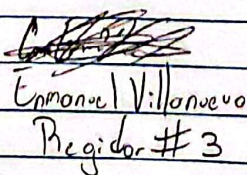 Enmanuel Villanueva
Regidor # 3